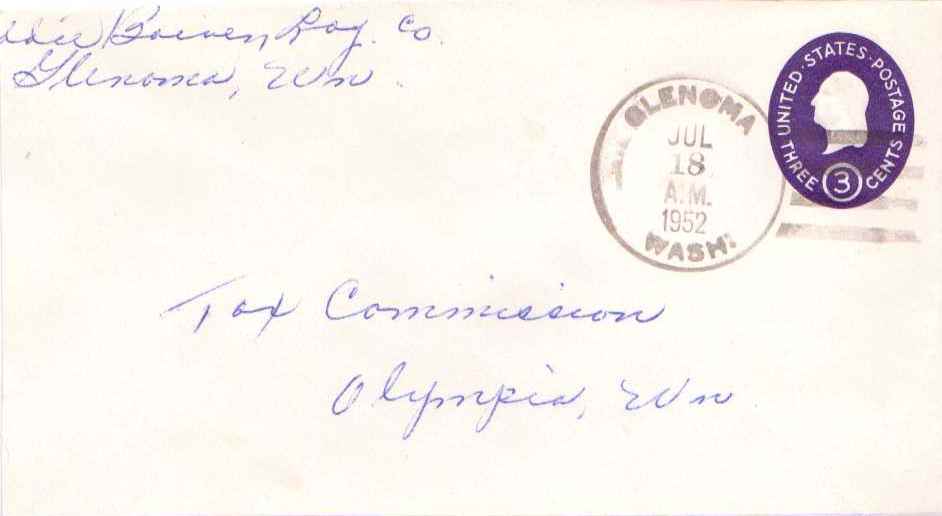 Log. Co.
Glenoma, Wn.
GLENOMA
JUL
18
A.M.
1952
WASH.
UNITED·STATES·POSTAGE
THREE 3 CENTS
Tax Commission
Olympia, Wn